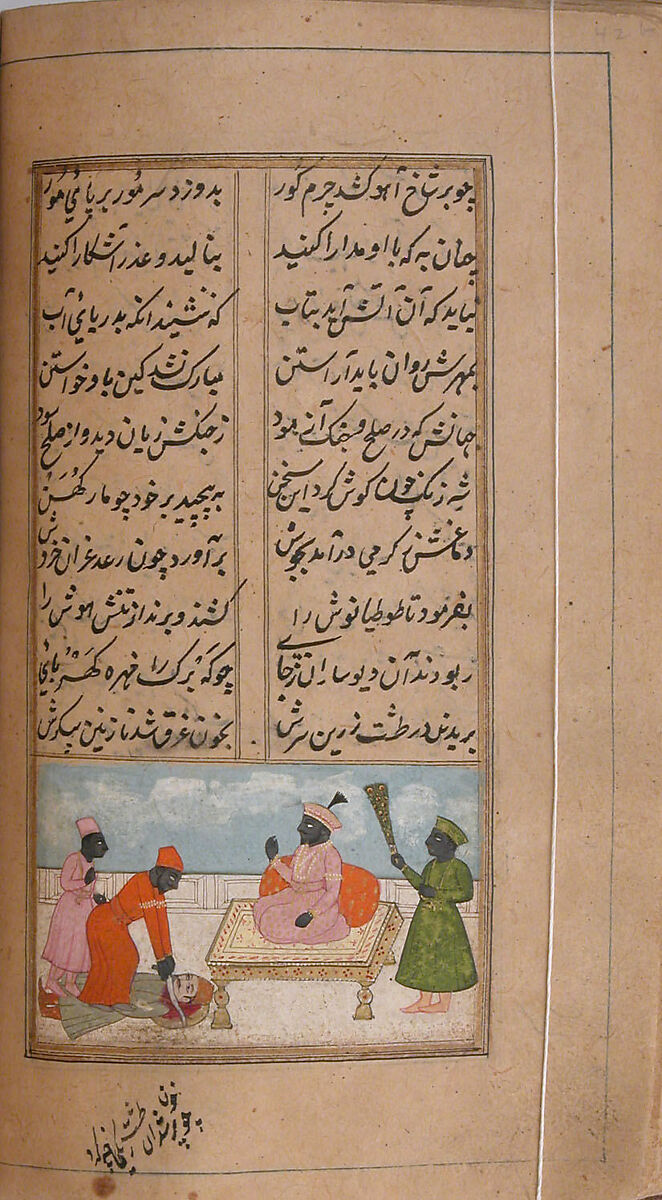 چو بر شاخ آهو کشد چرم گور بدوزد سر مور بر پائی مور
چنان به که با او مدارا کنید بنالید و عذر آشکارا کنید
نباید که آن آتش آید بتاب که ننشیند آنکه بدریائی آب
بمهرش روان باید آراستن مبارک نشد کین باو خواستن
جهانش که در صلح و جنگ آزمود ز جنگش زیان دید و از صلح سود
شه زنگ چون کوش کرد این سخن به پیچید بر خود چو مار کهن
دماغش ز کرمی در آمد بجوش برآورد چون رعد غران خروش
بفرمود تا طوطیانوش را کشند و برند از تنش هوش را
ربودند آن دیوساران ز جای چو که برک را مهره کهربائی
بریدند در طشت زرین سرش بخون غرق شد نازنین پیکرش
خون
طشت